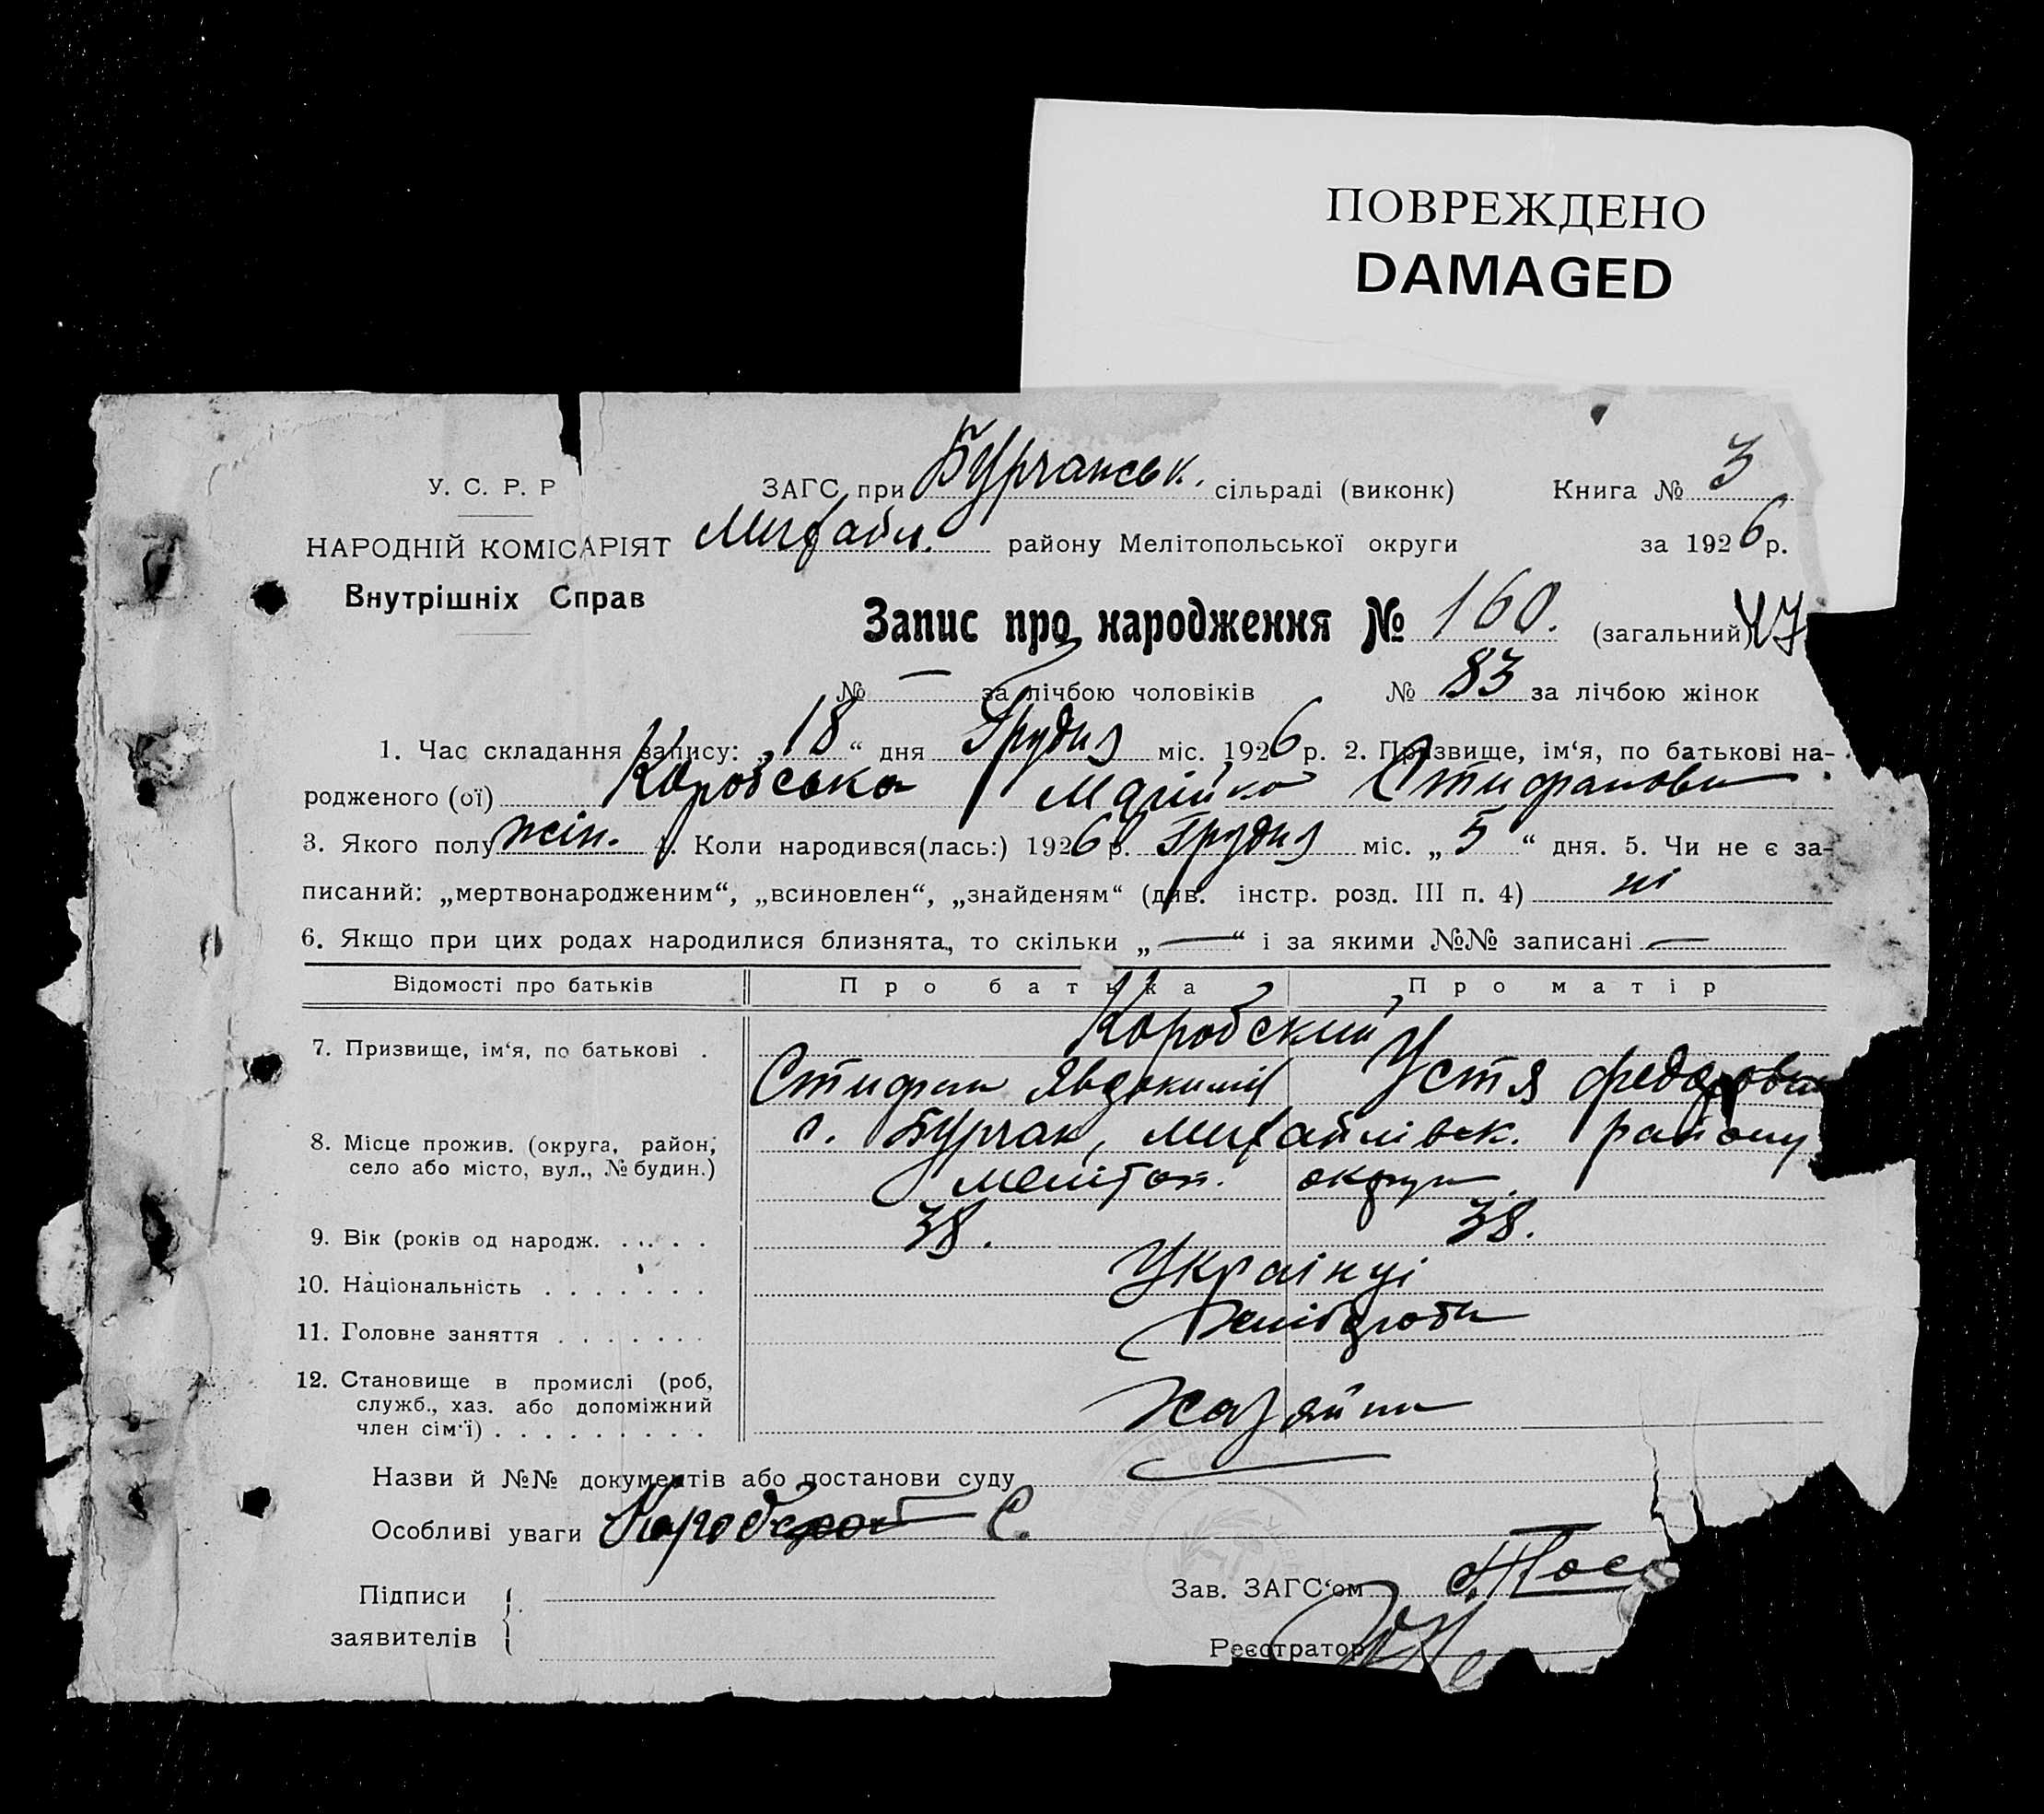 ПОВРЕЖДЕНО
DAMAGED
У. С. Р. Р
НАРОДНІЙ КОМІСАРІЯТ
Внутрішніх Справ
ЗАГС при Бурчанськ. сільраді (виконк) Книга № 3
Михайл. району Мелітопольської округи за 1926 р.
Запис про народження № 160. (загальний)
№ — за лічбою чоловіків № 83 за лічбою жінок
1. Час складання запису: „18“ дня Грудня міс. 1926 р. 2. Призвище, ім‘я, по батькові на-
родженого (ої) Коробська Стифанови
3. Якого полу жін. 4. Коли народився(лась:) 1926 р. Грудня міс. „5“ дня. 5. Чи не є за-
писаний: „мертвонародженим“, „всиновлен“, „знайденям“ (див. інстр. розд. III п. 4) ні
6. Якщо при цих родах народилися близнята, то скільки „—“ і за якими №№ записані —
Відомості про батьків Про батька Про матір
7. Призвище, ім‘я, по батькові . Коробский
Стифан Явдокимів Устя Федоровн
8. Місце прожив. (округа, район, село або місто, вул., № будин.) с. Бурчак, Михайлівськ. району
Мелітоп. округи.
9. Вік (років од народж. . . . . . 38. 38.
10. Національність . . . . . . . Українці
11. Головне заняття . . . . . . . Хліборби
12. Становище в промислі (роб, служб., хаз. або допоміжний член сім‘ї) . . . . . . . . . Хазяїни
Назви й №№ документів або постанови суду
Особливі уваги С.
Підписи
заявителів
Зав. ЗАГС‘ом
Реєстратор